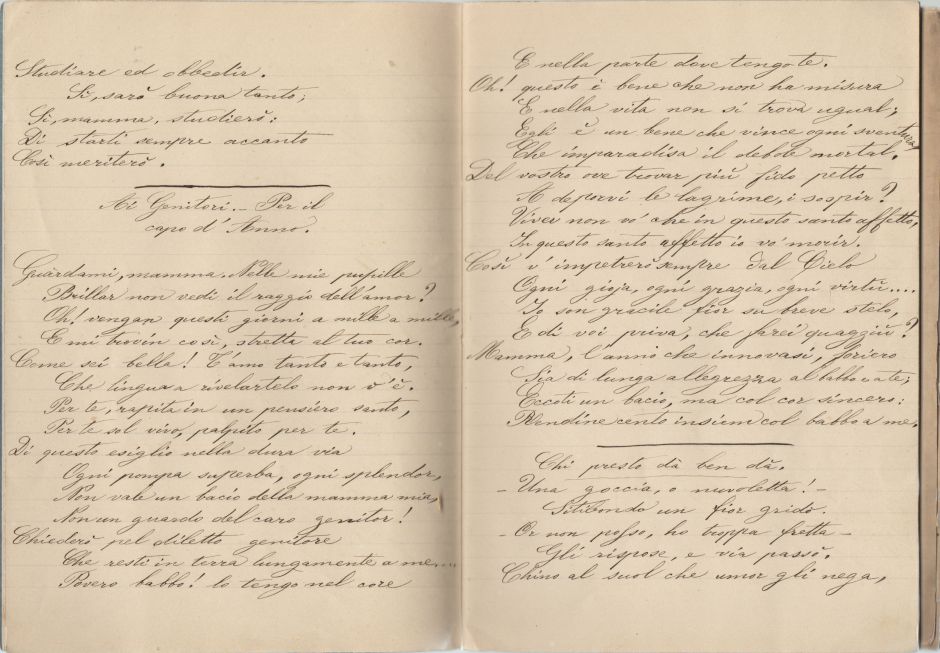 Studiare ed obbedir.
Sì, sarò buona tanto;
Sì, mamma, studierò:
Di starti sempre accanto
Così meriterò.
Ai Genitori. – Per il
capo d'Anno.
Guardami, mamma. Nelle mie pupille
Brillar non vedi il raggio dell'amor?
Oh! vengan questi giorni a mille a mille,
E mi trovin così, stretta al tuo cor.
Come sei bella! T'amo tanto e tanto,
Che lingua a rivelartelo non v'è.
Per te, rapita in un pensiero santo,
Per te sol vivo, palpito per te.
Di questo esiglio nella dura via
Ogni pompa superba, ogni splendor,
Non vale un bacio della mamma mia,
Non un guardo del caro genitor!
Chiederò pel diletto genitore
Che resti in terra lungamente a me....
Povero babbo! lo tengo nel core
E nella parte dove tengo te.
Oh! questo è bene che non ha misura
E nella vita non si trova ugual;
Egli è un bene che vince ogni sventura,
Che imparadisa il debole mortal.
Del vostro ove trovar più fido petto
A deporvi le lagrime, i sospir?
Viver non vo' che in questo santo affetto,
In questo santo affetto io vo' morir.
Così v'impetrerò sempre dal Cielo
Ogni gioja, ogni grazia, ogni virtù....
Io son gracile fior su breve stelo,
E di voi priva, che farei quaggiù?
Mamma, l'anno che innovasi, foriero
Sia di lunga allegrezza al babbo e a te;
Eccoti un bacio, ma col cor sincero:
Rendine cento insiem col babbo a me.
Chi presto dà ben dà.
– Una goccia, o nuvoletta! –
Sitibondo un fior gridò.
– Or non posso, ho troppa fretta –
Gli rispose, e via passò.
Chino al suol che umor gli nega,